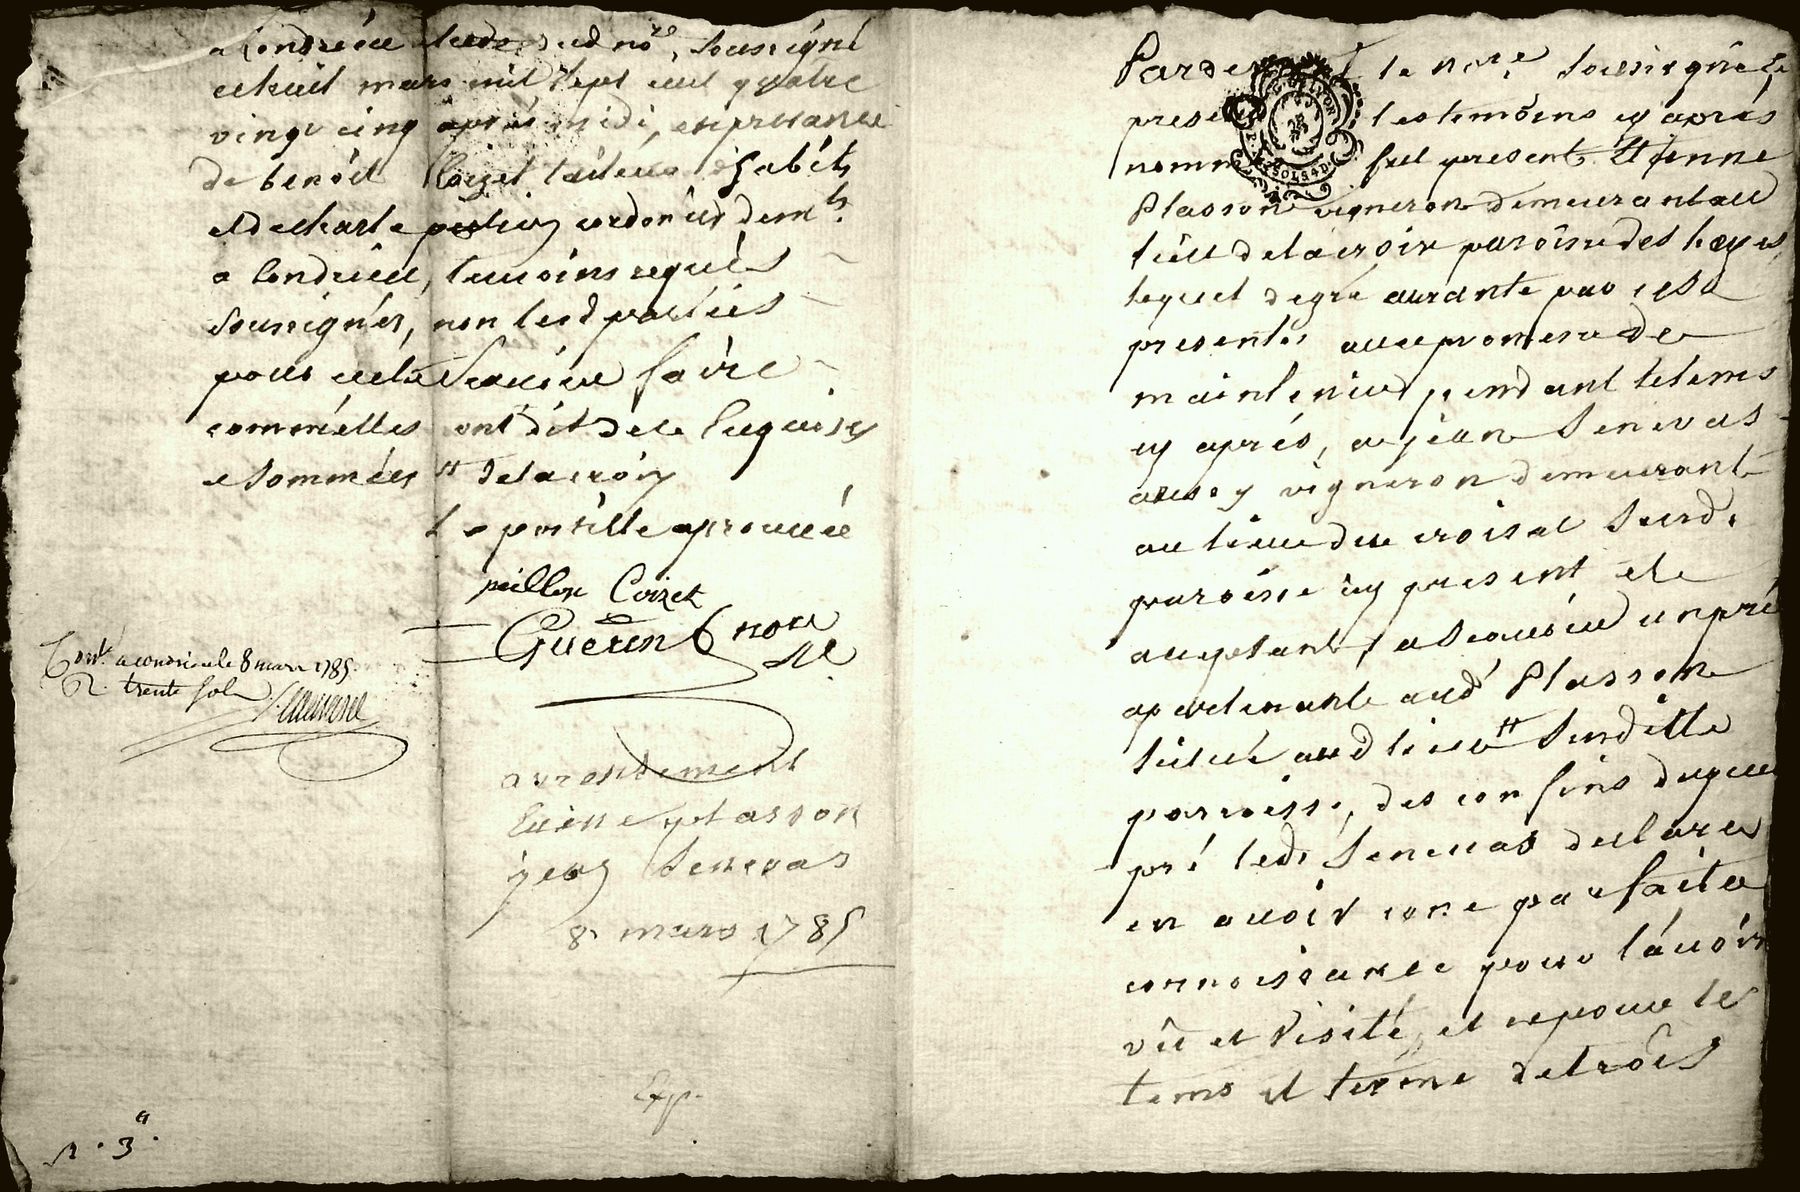 a Condrieu dud no.re soussigné
cehuit mars mil sept cent quatre
vingt cinq apres midi, en presance
de benoit Coizet tailleur d'habits
et de charle cordonier demts.
a Condrieu, temoins requis
soussignés, non lesd parties
pour ne le scauoir faire
comme elles ont dit de ce enquises
et sommées tt de la croix
le postille aprouué
peillon Coizet
Guerin nore
Cont. a condrieu le 8 mars 1785.
R. trente sols
arrentement
Etiene plasson
jean Senevas
8. mars 1785
Exp.
n. 3
Pardevant le nore. soussigné &
presents les temoins cy aprés
nommés fut present Etienne
Plasson vigneron demeurant au
lieu de la croix paroisse des hayes,
lequel de gré arrante par ces
presentes avec promesse de
maintenir pendant le tems
cy aprés, a jean Senevas
aussy vigneron demeurant
au lieu du croisat susd.
paroisse icy present et
aceptant, a scauoir un pré
apartenant aud Plasson
situé aud lieu tt susditte
parroisse, des confins duquel
pré led. Seneuas declare
en avoir une parfaite
connoissance pour l'auoir
vû et visité, et ce pour le
tems et terme de trois